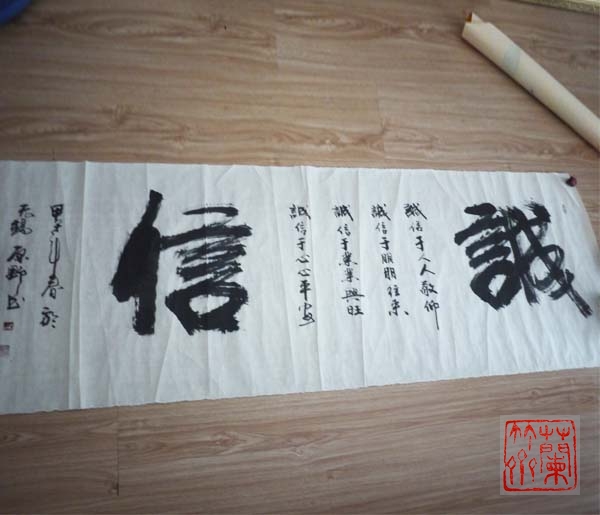 誠
誠信于人人敬仰
誠信于朋朋往来
誠信于業業興旺
誠信于心心平安
信
甲午年春於
无錫原野书
蘭
竹